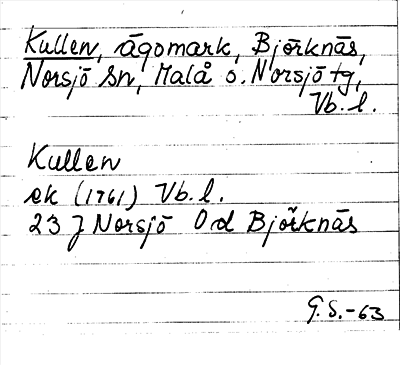 Kullen, ägomark, Björknäs,
Norsjö sn, Malå o. Norsjö tg,
Vb. l.
Kullen
ek (1761) Vb. l.
23 J Norsjö Od Björknäs
G.S.-63